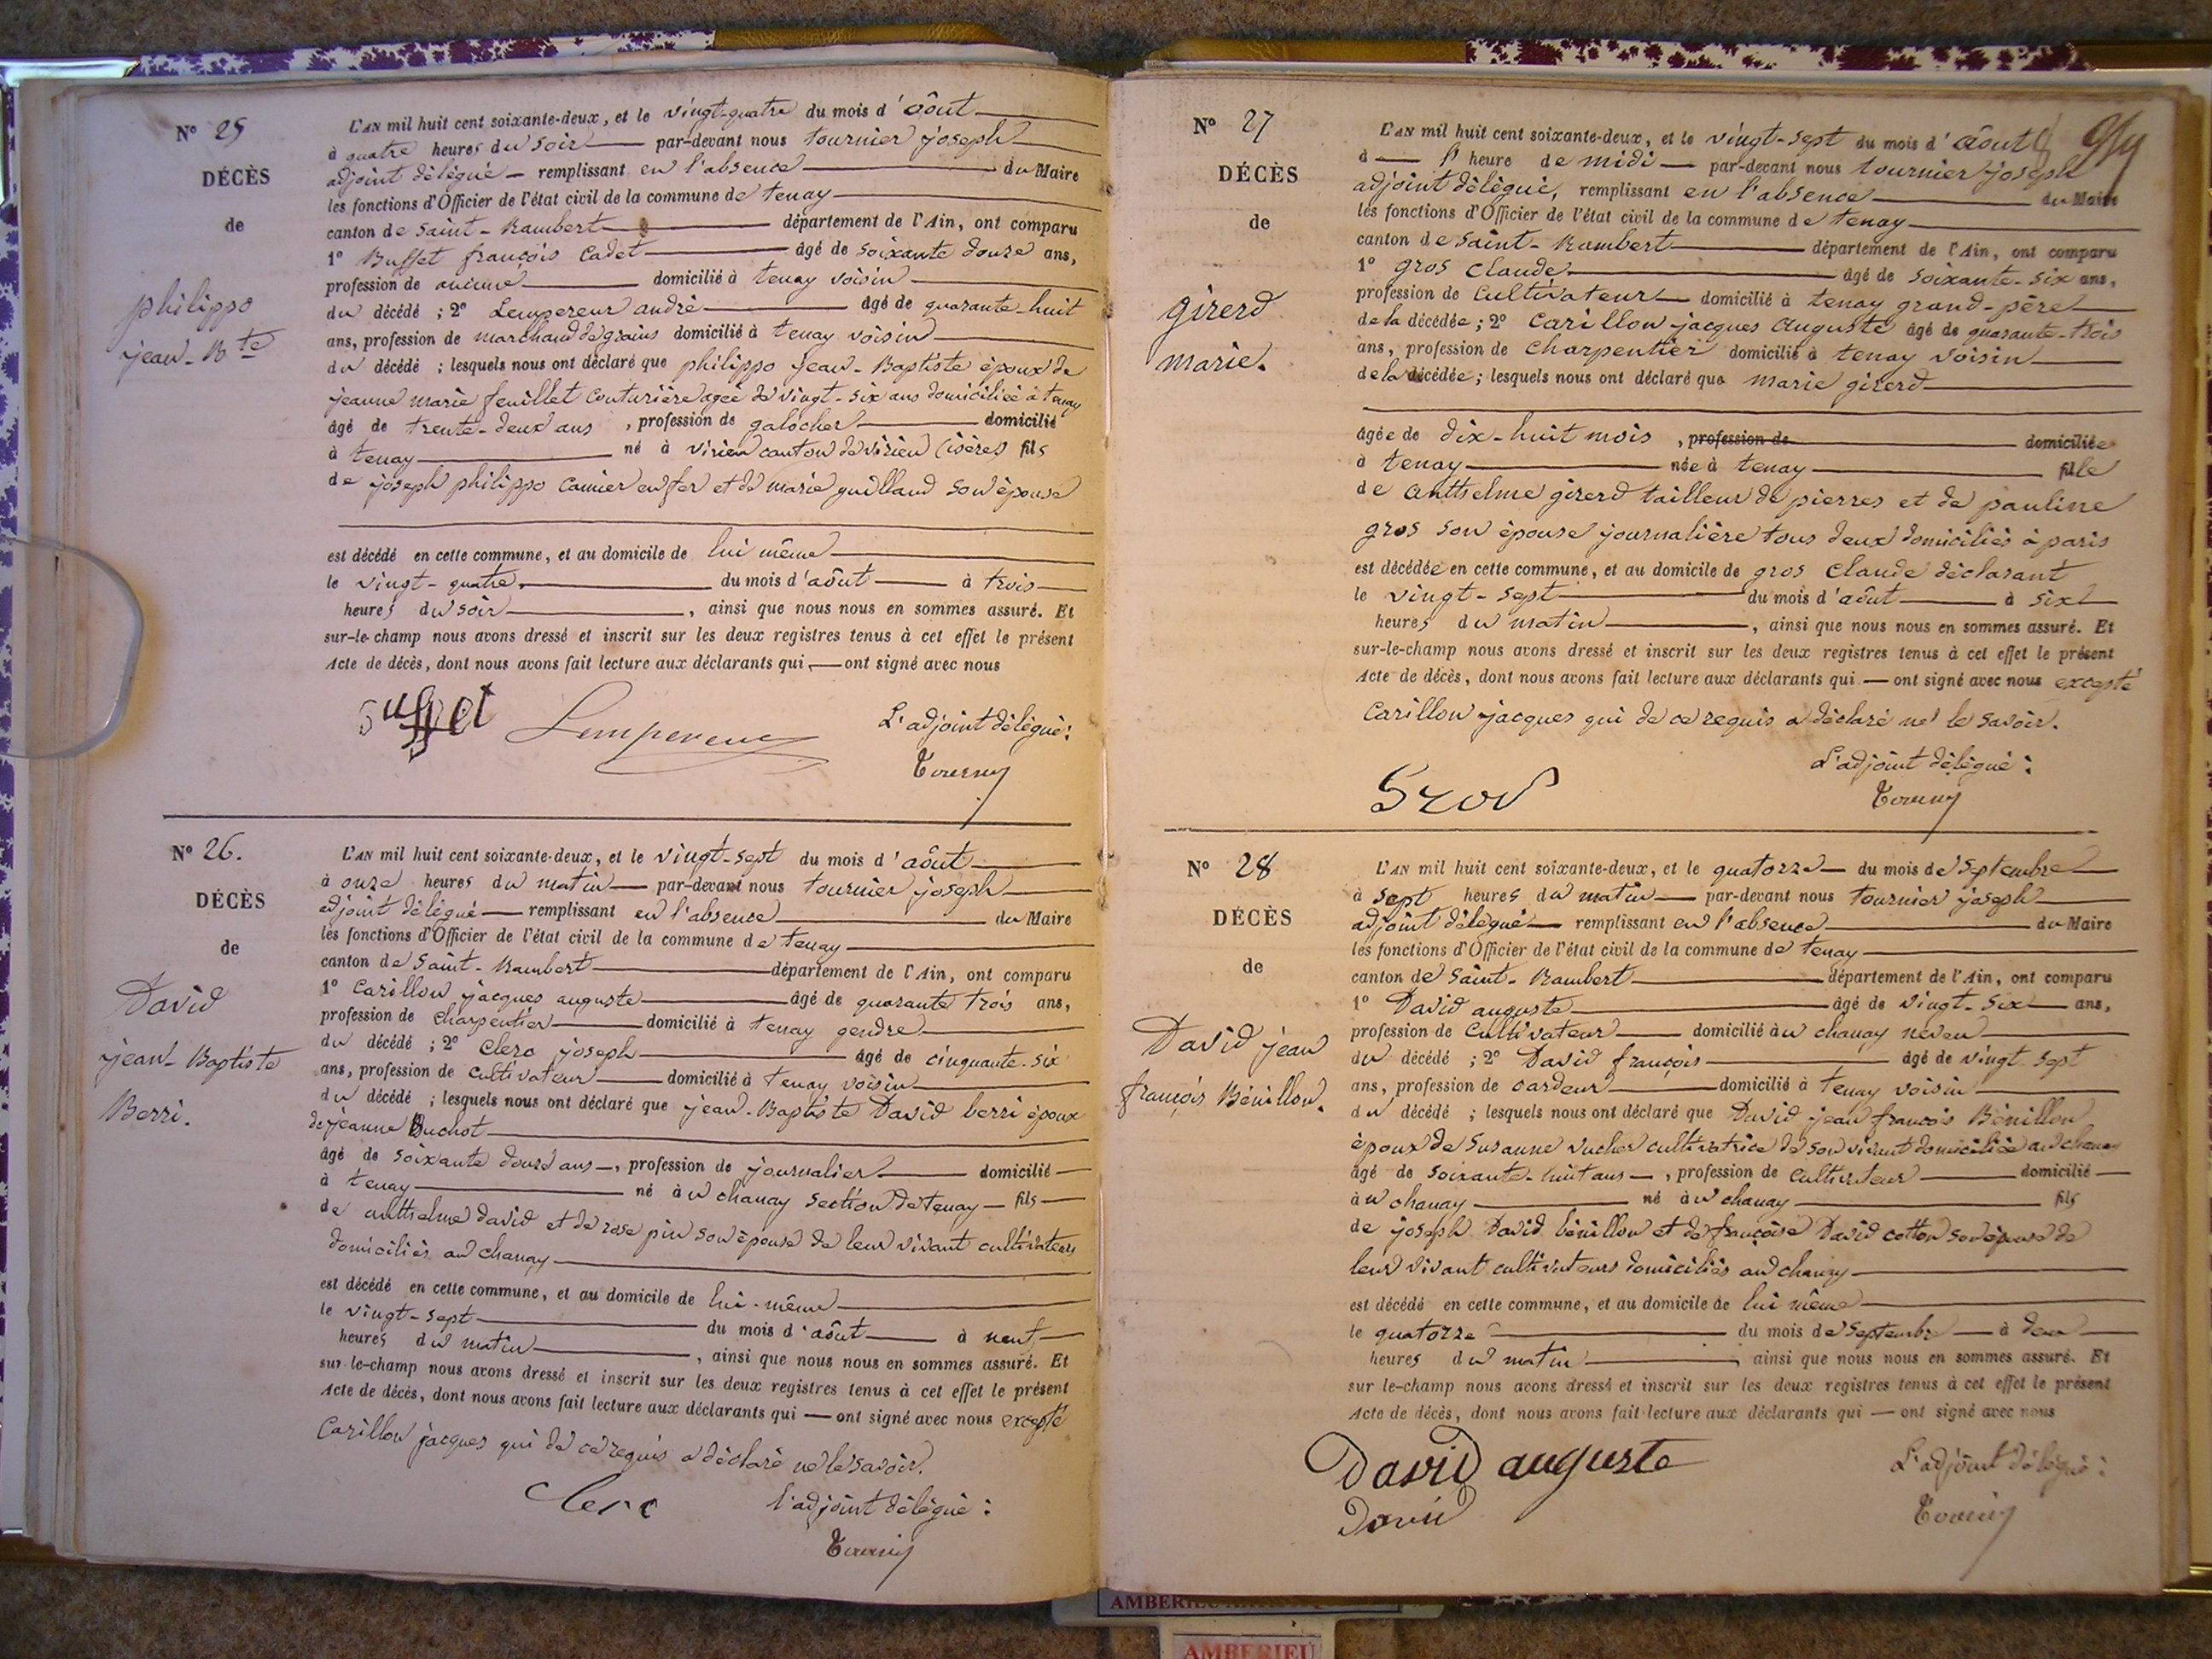 Nº 25
DÉCÈS
de
philippo
jean-Bte
L'AN mil huit cent soixante-deux, et le vingt-quatre du mois d'août
à quatre heures du soir par-devant nous tournier joseph
adjoint délégué remplissant en l'absence du Maire
les fonctions d'Officier de l'état civil de la commune de tenay
canton de Saint-Rambert département de l'Ain, ont comparu
1º Buffet françois Cadet âgé de soixante douze ans,
profession de domicilié à tenay voisin
du décédé ; 2º Lempereur andré âgé de quarante-huit
ans, profession de marchand de grains domicilié à tenay voisin
du décédé ; lesquels nous ont déclaré que philippo jean-Baptiste époux de
jeanne marie feuillet couturière agée de vingt-six ans domiciliée à tenay
âgé de trente-deux ans, profession de galocher domicilié
à tenay né à virieu canton de virieu (isère) fils
de joseph philippo en fer et de marie guilland son épouse
est décédé en cette commune, et au domicile de lui même
le vingt-quatre du mois d'août à trois
heures du soir, ainsi que nous nous en sommes assuré. Et
sur-le-champ nous avons dressé et inscrit sur les deux registres tenus à cet effet le présent
Acte de décès, dont nous avons fait lecture aux déclarants qui ont signé avec nous
Buffet Lempereur L'adjoint délégué :
Tournier
Nº 26.
DÉCÈS
de
David
jean-Baptiste
Berri.
L'AN mil huit cent soixante-deux, et le vingt-sept du mois d'août
à onze heures du matin par-devant nous tournier joseph
adjoint délégué remplissant en l'absence du Maire
les fonctions d'Officier de l'état civil de la commune de tenay
canton de Saint-Rambert département de l'Ain, ont comparu
1º Carillon jacques auguste âgé de quarante trois ans,
profession de charpentier domicilié à tenay gendre
du décédé ; 2º clerc joseph âgé de cinquante-six
ans, profession de cultivateur domicilié à tenay voisin
du décédé ; lesquels nous ont déclaré que jean-Baptiste David berri époux
de jeanne Buchot
âgé de soixante douze ans, profession de journalier domicilié
à tenay né à u chanay section de tenay fils
de antthelme david et de rose pin son épouse de leur vivant cultivateurs
domiciliés au chanay
est décédé en cette commune, et au domicile de lui-même
le vingt-sept du mois d'août à neuf
heures du matin, ainsi que nous nous en sommes assuré. Et
sur-le-champ nous avons dressé et inscrit sur les deux registres tenus à cet effet le présent
Acte de décès, dont nous avons fait lecture aux déclarants qui ont signé avec nous excepté
Carillon jacques qui de ce requis a déclaré ne le savoir.
Clerc l'adjoint délégué :
Tournier
Nº 27
DÉCÈS
de
girerd
marie.
L'AN mil huit cent soixante-deux, et le vingt-sept du mois d'août
à l'heure de midi par-devant nous tournier joseph
adjoint délégué, remplissant en l'absence du Maire
les fonctions d'Officier de l'état civil de la commune de tenay
canton de Saint-Rambert département de l'Ain, ont comparu
1º gros claude âgé de soixante-six ans,
profession de Cultivateur domicilié à tenay grand-père
de la décédée ; 2º Carillon jacques auguste âgé de quarante-trois
ans, profession de Charpentier domicilié à tenay voisin
de la décédée ; lesquels nous ont déclaré que marie girerd
âgée de dix-huit mois, profession de domiciliée
à tenay née à tenay fille
de antthelme girerd tailleur de pierres et de pauline
gros son épouse journalière tous deux domiciliés à paris
est décédée en cette commune, et au domicile de gros claude déclarant
le vingt-sept du mois d'août à six
heures du matin, ainsi que nous nous en sommes assuré. Et
sur-le-champ nous avons dressé et inscrit sur les deux registres tenus à cet effet le présent
Acte de décès, dont nous avons fait lecture aux déclarants qui ont signé avec nous excepté
Carillon jacques qui de ce requis a déclaré ne le savoir.
L'adjoint délégué :
Gros Tournier
Nº 28
DÉCÈS
de
David jean
françois Bénillon.
L'AN mil huit cent soixante-deux, et le quatorze du mois de Septembre
à sept heures du matin par-devant nous tournier joseph
adjoint délégué remplissant en l'absence du Maire
les fonctions d'Officier de l'état civil de la commune de tenay
canton de Saint-Rambert département de l'Ain, ont comparu
1º David auguste âgé de vingt-six ans,
profession de Cultivateur domicilié à u chanay neveu
du décédé ; 2º David françois âgé de vingt-sept
ans, profession de cardeur domicilié à tenay voisin
du décédé ; lesquels nous ont déclaré que David jean françois Bénillon
époux de Susanne vucher cultivatrice de son vivant domiciliée au chanay
âgé de soixante-huit ans, profession de cultivateur domicilié
à u chanay né à u chanay fils
de joseph David bénillon et de françoise David cotton son épouse de
leur vivant cultivateurs domiciliés au chanay
est décédé en cette commune, et au domicile de lui même
le quatorze du mois de Septembre à deux
heures du matin ainsi que nous nous en sommes assuré. Et
sur-le-champ nous avons dressé et inscrit sur les deux registres tenus à cet effet le présent
Acte de décès, dont nous avons fait lecture aux déclarants qui ont signé avec nous
David auguste L'adjoint délégué :
David Tournier
AMBERIEU
AMBERIEU